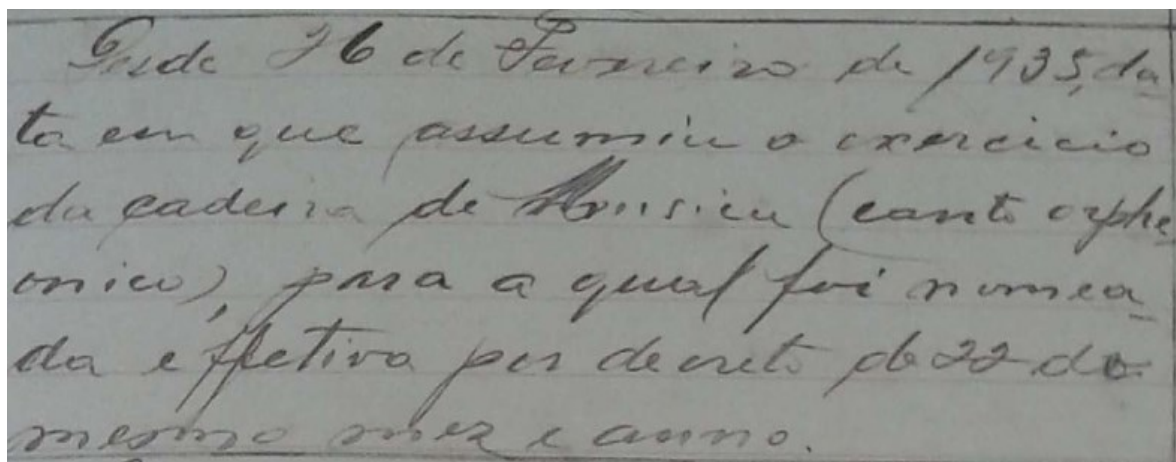 Desde 26 de Fevereiro de 1935, da
ta em que assumiu o exercicio
da cadeira de Musica (canto orphe
onico), para a qual foi nomea
da effectiva por decreto de 22 do
mesmo mez e anno.